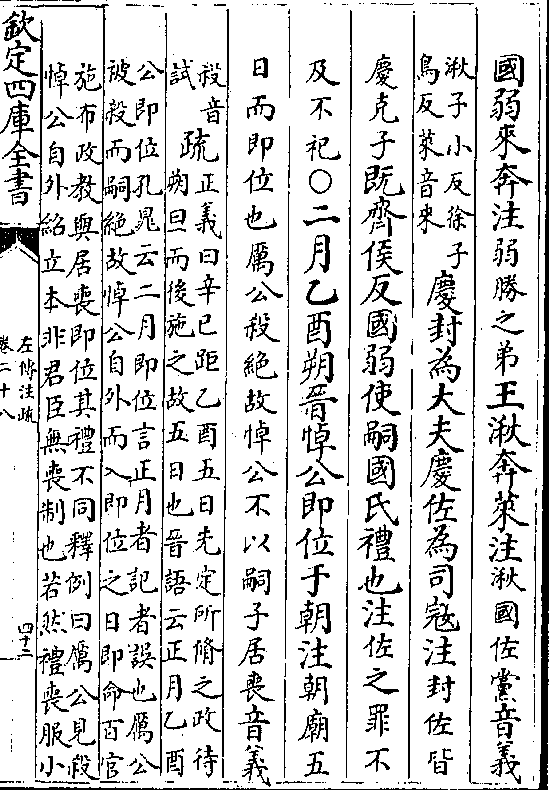 國弱來奔注弱勝之弟王湫奔萊注湫國佐黨音義
湫子小反徐子
鳥反萊音來
慶封為大夫慶佐為司冦注封佐皆
慶克子既齊侯反國弱使嗣國氏禮也注佐之罪不
及不祀○二月乙酉朔晉悼公即位于朝注朝廟五
日而即位也厲公殺絶故悼公不以嗣子居喪音義
殺音
試
疏
正義曰辛巳距乙酉五日先定所脩之政待
朔旦而後施之故五日也晉語云正月乙酉
公即位孔晁云二月即位言正月者記者誤也厲公
被殺而嗣絶故悼公自外而入即位之日即命百官
施布政教與居喪即位其禮不同釋例曰厲公見殺
悼公自外紹立本非君臣無喪制也若然禮喪服小
欽定四庫全書
左傳注疏
卷二十八
四十二